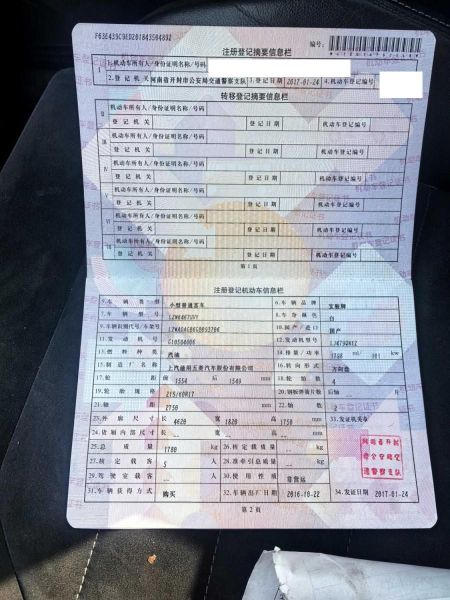 F63E433C9ED201843504892
注册登记摘要信息栏
编号:
1.机动车所有人/身份证明名称/号码
2.登记机关 河南省开封市公安局交通警察支队 3.登记日期 2017-01-24 4.机动车登记编号
转移登记摘要信息栏
Ⅱ 机动车所有人/身份证明名称/号码
登记机关 登记日期 机动车登记编号
Ⅲ 机动车所有人/身份证明名称/号码
登记机关 登记日期 机动车登记编号
Ⅳ 机动车所有人/身份证明名称/号码
登记机关 登记日期 机动车登记编号
Ⅴ 机动车所有人/身份证明名称/号码
登记机关 登记日期 机动车登记编号
Ⅵ 机动车所有人/身份证明名称/号码
登记机关 登记日期 机动车登记编号
Ⅶ 机动车所有人/身份证明名称/号码
登记机关 登记日期 机动车登记编号
第1页
注册登记机动车信息栏
5.车辆类型 小型普通客车 6.车辆品牌 宝骏牌
7.车辆型号 8.车身颜色 白
9.车辆识别代号/车架号 10.国产/进口 国产
11.发动机号 12.发动机型号
13.燃料种类 汽油 14.排量/功率 ml kw
15.制造厂名称 上汽通用五菱汽车股份有限公司 16.转向形式 方向盘
17.轮距 前 1554 后 1549 mm 18.轮胎数 4
19.轮胎规格 215/60R17 20.钢板弹簧片数 后轴 片
21.轴距 2750 mm 22.轴数 2
23.外廓尺寸 长 4620 宽 1820 高 1750 mm 33.发证机关章
24.货厢内部尺寸 长 -- 宽 -- 高 -- mm
25.总质量 1780 kg 26.核定载质量 -- kg
27.核定载客 5 人 28.准牵引总质量 -- kg
29.驾驶室载客 -- 人 30.使用性质 非营运
河南省开封市公安局交通警察支队
31.车辆获得方式 购买 32.车辆出厂日期 2016-10-22 34.发证日期 2017-01-24
第2页